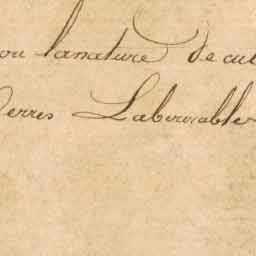 ou lanature de cul
Terres Labourables